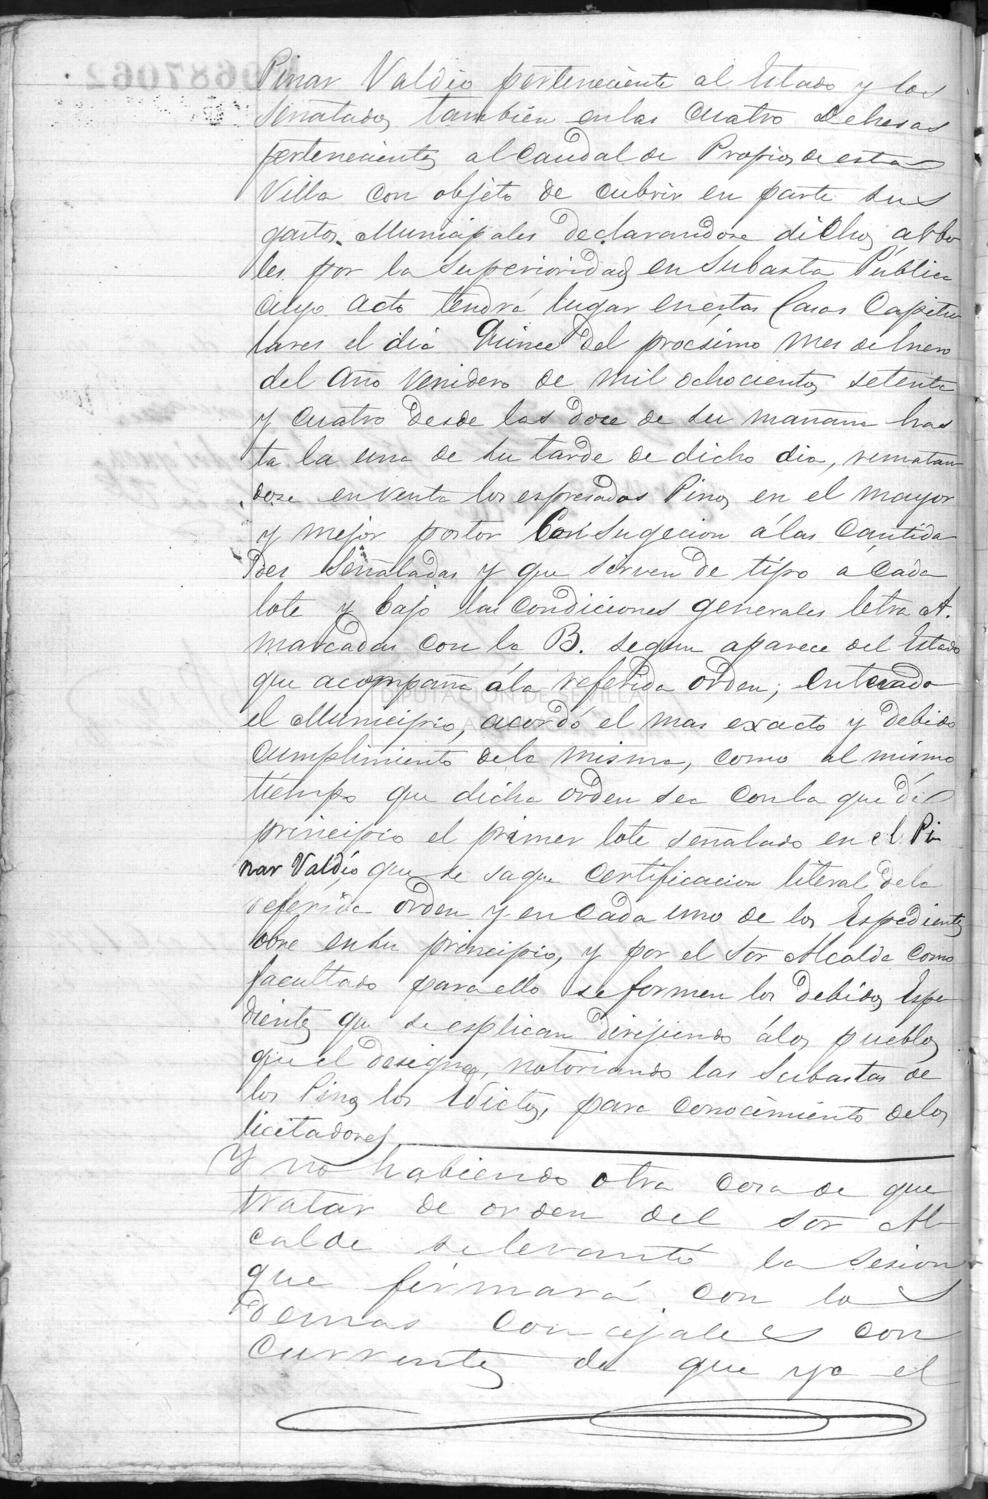 Pinar Valdio perteneciente al Estado y los
señalados tambien en las cuatro Dehesas
pertenecientes al Caudal de Propios de esta
Villa con objeto de cubrir en parte sus
gastos Municipales declarandose dichos arbo
les por la Superioridad en Subasta Pública
cuyo acto tendrá lugar en estas Casas Capitu
lares el dia Quince del procsimo mes de Enero
del Año Venidero de mil ochocientos setenta
y cuatro desde las doce de su mañana has
ta la una de su tarde de dicho dia, rematan
dose en venta los espresados Pinos en el mayor
y mejor postor Con sugecion á las Cantida
des señaladas y que sirven de tipo a cada
lote y bajo las Condiciones generales letra A.
marcadas con la B. segun aparece del Estado
que acompaña á la referida orden; enterado
el Municipio, acordó el mas exacto y debido
cumplimiento de la misma, como al mismo
tiempo que dicha orden sea con la que dé
principio el primer lote señalado en el Pi
nar Valdío que se saque certificacion literal de la
referida orden y en cada uno de los Espedientes
obre en su principio, y por el Sor Alcalde como
facultado para ello se formen los debidos Espe
dientes que se esplican dirijiendo á los pueblos
que el designe, notoriando las Subastas de
los Pinos los Edictos, para conocimiento de los
licitadores
Y no habiendo otra cosa de que
tratar de orden del Sor Al
calde se levantó la sesion
que firmará con los
demas concejales con
currentes de que yo el